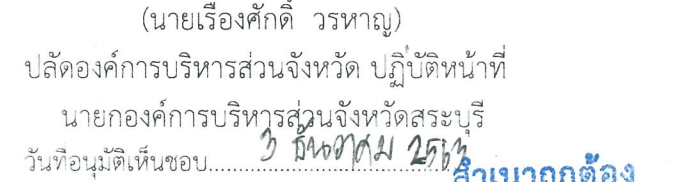 (นายเรืองศักดิ์ วรหาญ)
ปลัดองค์การบริหารส่วนจังหวัด ปฏิบัติหน้าที่
นายกองค์การบริหารส่วนจังหวัดสระบุรี
วันที่อนุมัติเห็นชอบ....3 ธันวาคม 2563
สำเนาถูกต้อง